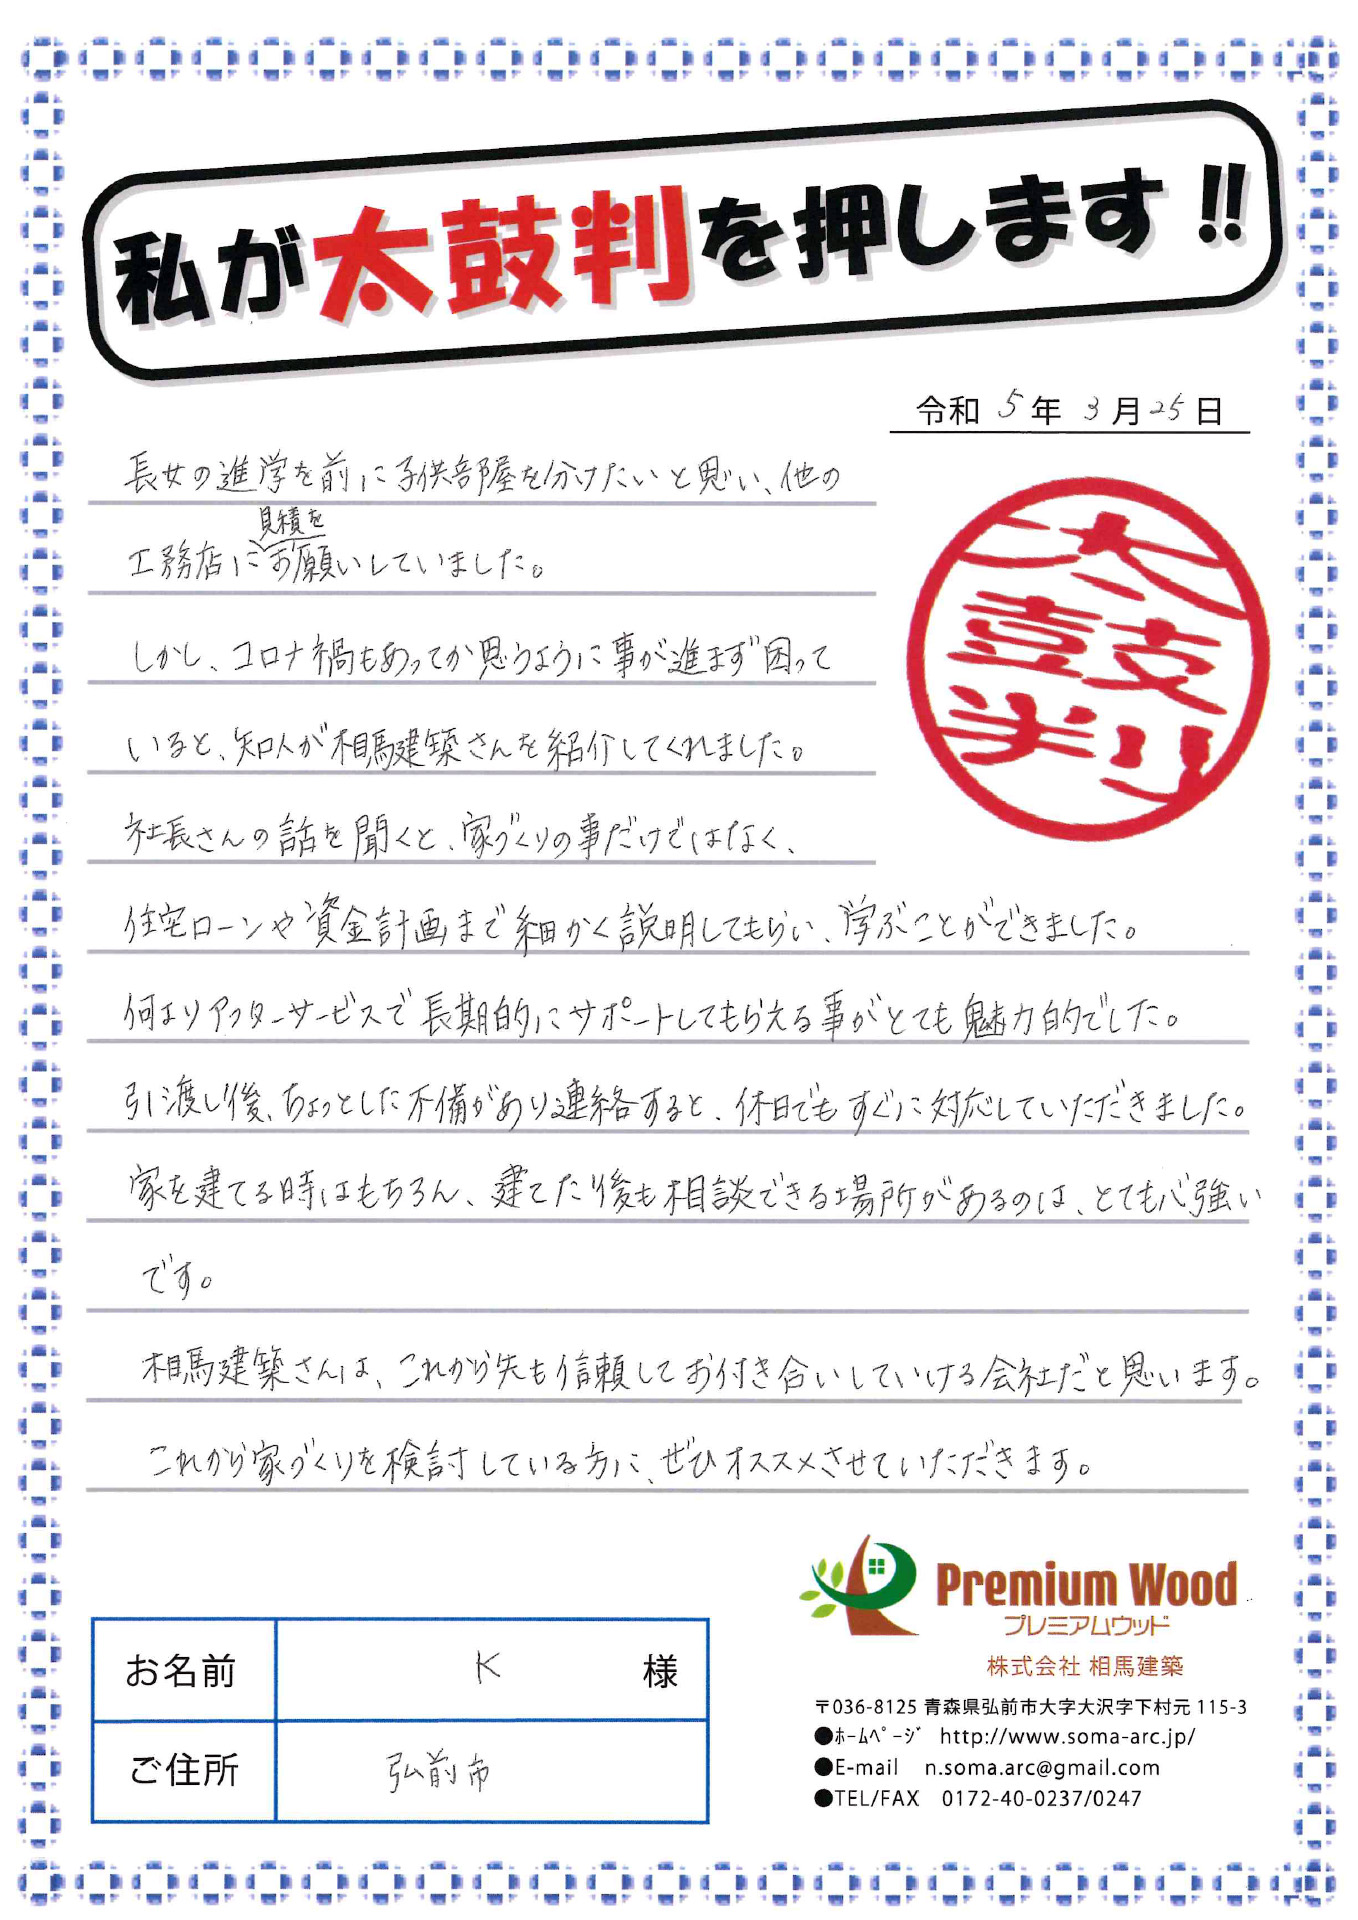 私が太鼓判を押します!!
令和 5 年 3 月 25 日
長女の進学を前に子供部屋を分けたいと思い、他の
見積を
工務店にお願いしていました。
しかし、コロナ禍もあってか思うように事が進まず困って
いると、知人が相馬建築さんを紹介してくれました。
太鼓判
社長さんの話を聞くと、家づくりの事だけではなく、
住宅ローンや資金計画まで細かく説明してもらい、学ぶことができました。
何よりアフターサービスで長期的にサポートしてもらえる事がとても魅力的でした。
引渡し後、ちょっとした不備があり連絡すると、休日でもすぐに対応していただきました。
家を建てる時はもちろん、建てた後も相談できる場所があるのは、とても心強い
です。
相馬建築さんは、これから先も信頼してお付き合いしていける会社だと思います。
これから家づくりを検討している方に、ぜひオススメさせていただきます。
Premium Wood
プレミアムウッド
株式会社 相馬建築
お名前 K 様
ご住所 弘前市
〒036-8125 青森県弘前市大字大沢字下村元 115-3
●ﾎｰﾑﾍﾟｰｼﾞ http://www.soma-arc.jp/
●E-mail n.soma.arc@gmail.com
●TEL/FAX 0172-40-0237/0247